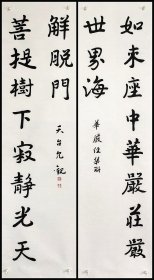 如來座中華嚴莊嚴
世界海
華嚴經集
菩提樹下寂靜光天
解脫門
天台允觀